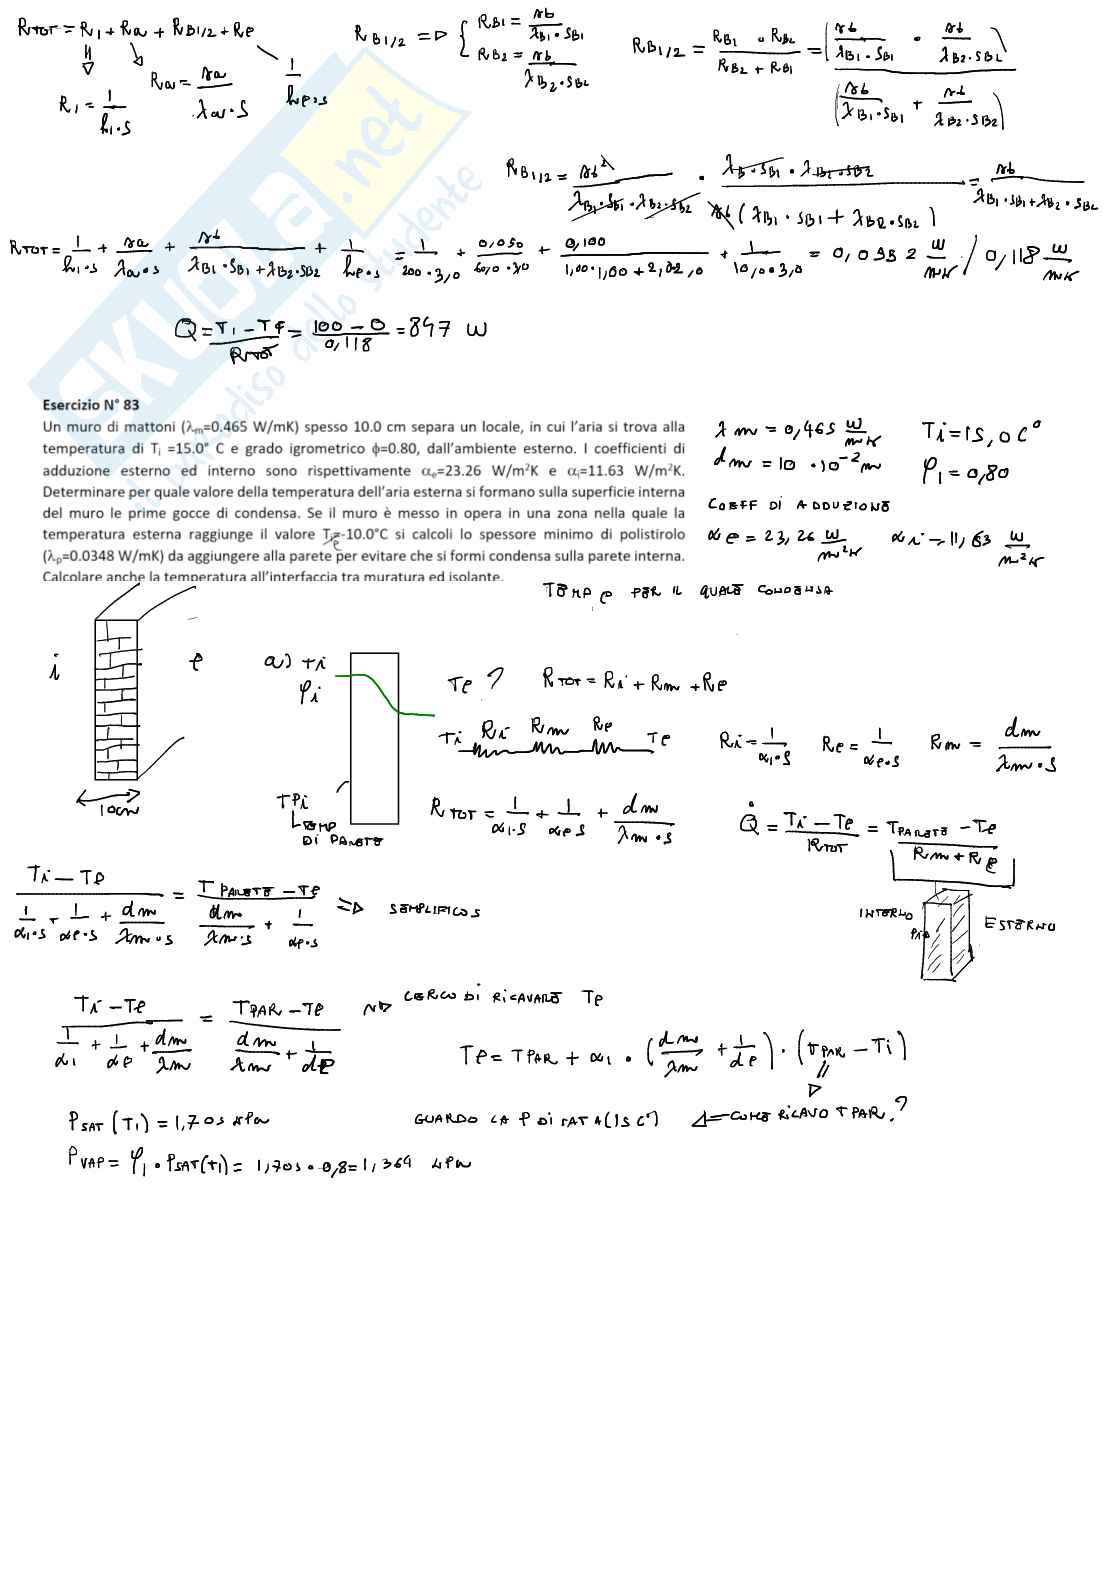 R_TOT = R_1 + R_a + R_B1/2 + R_e
R_1 = 1/(h_1·S)
R_a = s_a/(λ_a·S)
1/(h_e·S)
R_B1/2 => { R_B1 = s_b/(λ_B1·S_B1)
R_B2 = s_b/(λ_B2·S_B2)
R_B1/2 = (R_B1·R_B2)/(R_B2+R_B1) = (s_b/(λ_B1·S_B1) · s_b/(λ_B2·S_B2)) / (s_b/(λ_B1·S_B1) + s_b/(λ_B2·S_B2))
R_B1/2 = s_b²/(λ_B1·S_B1·λ_B2·S_B2) · (λ_B·S_B1·λ_B2·S_B2)/(s_b(λ_B1·S_B1+λ_B2·S_B2)) = s_b/(λ_B1·S_B1+λ_B2·S_B2)
R_TOT = 1/(h_1·S) + s_a/(λ_a·S) + s_b/(λ_B1·S_B1+λ_B2·S_B2) + 1/(h_e·S) = 1/(200·3,0) + 0,050/(60,0·3,0) + 0,100/(1,00·1,00+2,0·2,0) + 1/(10,0·3,0) = 0,0552 W/mK / 0,118 W/mK
Q = (T_1 - T_f)/R_TOT = (100 - 0)/0,118 = 847 W
SKUOLA.net
il paradiso dello studente
Esercizio N° 83
Un muro di mattoni (λm=0.465 W/mK) spesso 10.0 cm separa un locale, in cui l'aria si trova alla
temperatura di Ti =15.0° C e grado igrometrico ϕ=0.80, dall'ambiente esterno. I coefficienti di
adduzione esterno ed interno sono rispettivamente αe=23.26 W/m²K e αi=11.63 W/m²K.
Determinare per quale valore della temperatura dell'aria esterna si formano sulla superficie interna
del muro le prime gocce di condensa. Se il muro è messo in opera in una zona nella quale la
temperatura esterna raggiunge il valore Te=-10.0°C si calcoli lo spessore minimo di polistirolo
(λp=0.0348 W/mK) da aggiungere alla parete per evitare che si formi condensa sulla parete interna.
Calcolare anche la temperatura all'interfaccia tra muratura ed isolante.
λm = 0,465 W/mK
Ti = 15,0 C°
dm = 10·10⁻² m
φ1 = 0,80
COEFF DI ADDUZIONE
αe = 23,26 W/m²K
αi = 11,63 W/m²K
TEMP e PER IL QUALE CONDENSA
i
e
10cm
a) Ti
φi
TPi
TEMP
DI PARETE
Te?
R_TOT = Ri + Rm + Re
Ti Ri Rm Re Te
Ri = 1/(α1·S)
Re = 1/(αe·S)
Rm = dm/(λm·S)
R_TOT = 1/(α1·S) + 1/(αe·S) + dm/(λm·S)
Q̇ = (Ti - Te)/R_TOT = (T_PARETE - Te)/(Rm + Re)
INTERNO
ESTERNO
(Ti - Te)/(1/(α1·S) + 1/(αe·S) + dm/(λm·S)) = (T_PARETE - Te)/(dm/(λm·S) + 1/(αe·S)) => SEMPLIFICO S
(Ti - Te)/(1/α1 + 1/αe + dm/λm) = (T_PAR - Te)/(dm/λm + 1/de) CERCO DI RICAVARE Te
Te = T_PAR + α1·(dm/λm + 1/de)·(T_PAR - Ti)
P_SAT(T1) = 1,705 kPa
GUARDO LA P DI SAT A (15 C°)
COME RICAVO TPAR.?
P_VAP = φ1·P_SAT(T1) = 1,705·0,8 = 1,364 kPa